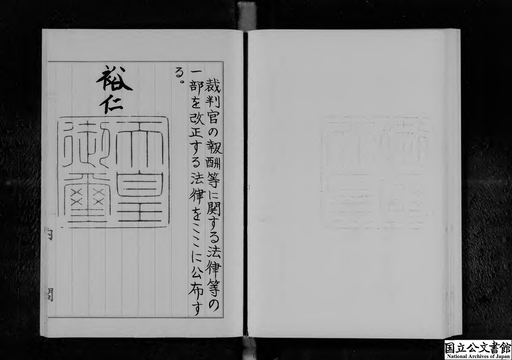 裁判官の報酬等に関する法律等の
一部を改正する法律をここに公布す
る。
裕仁
天皇
御璽
内閣
国立公文書館
National Archives of Japan